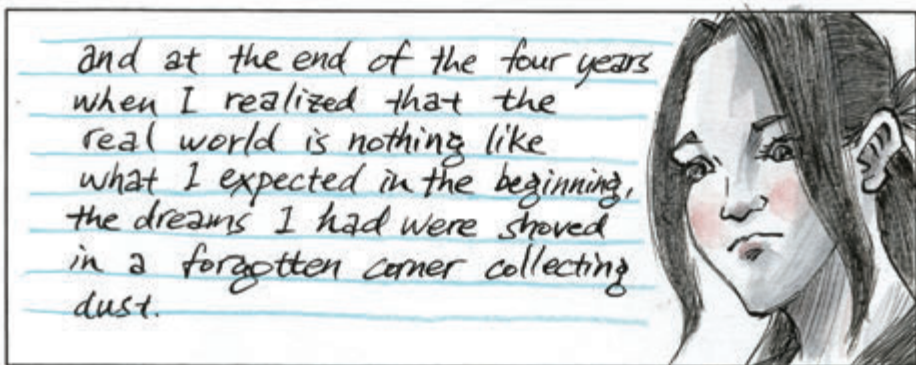 and at the end of the four years
when I realized that the
real world is nothing like
what I expected in the beginning,
the dreams I had were shoved
in a forgotten corner collecting
dust.